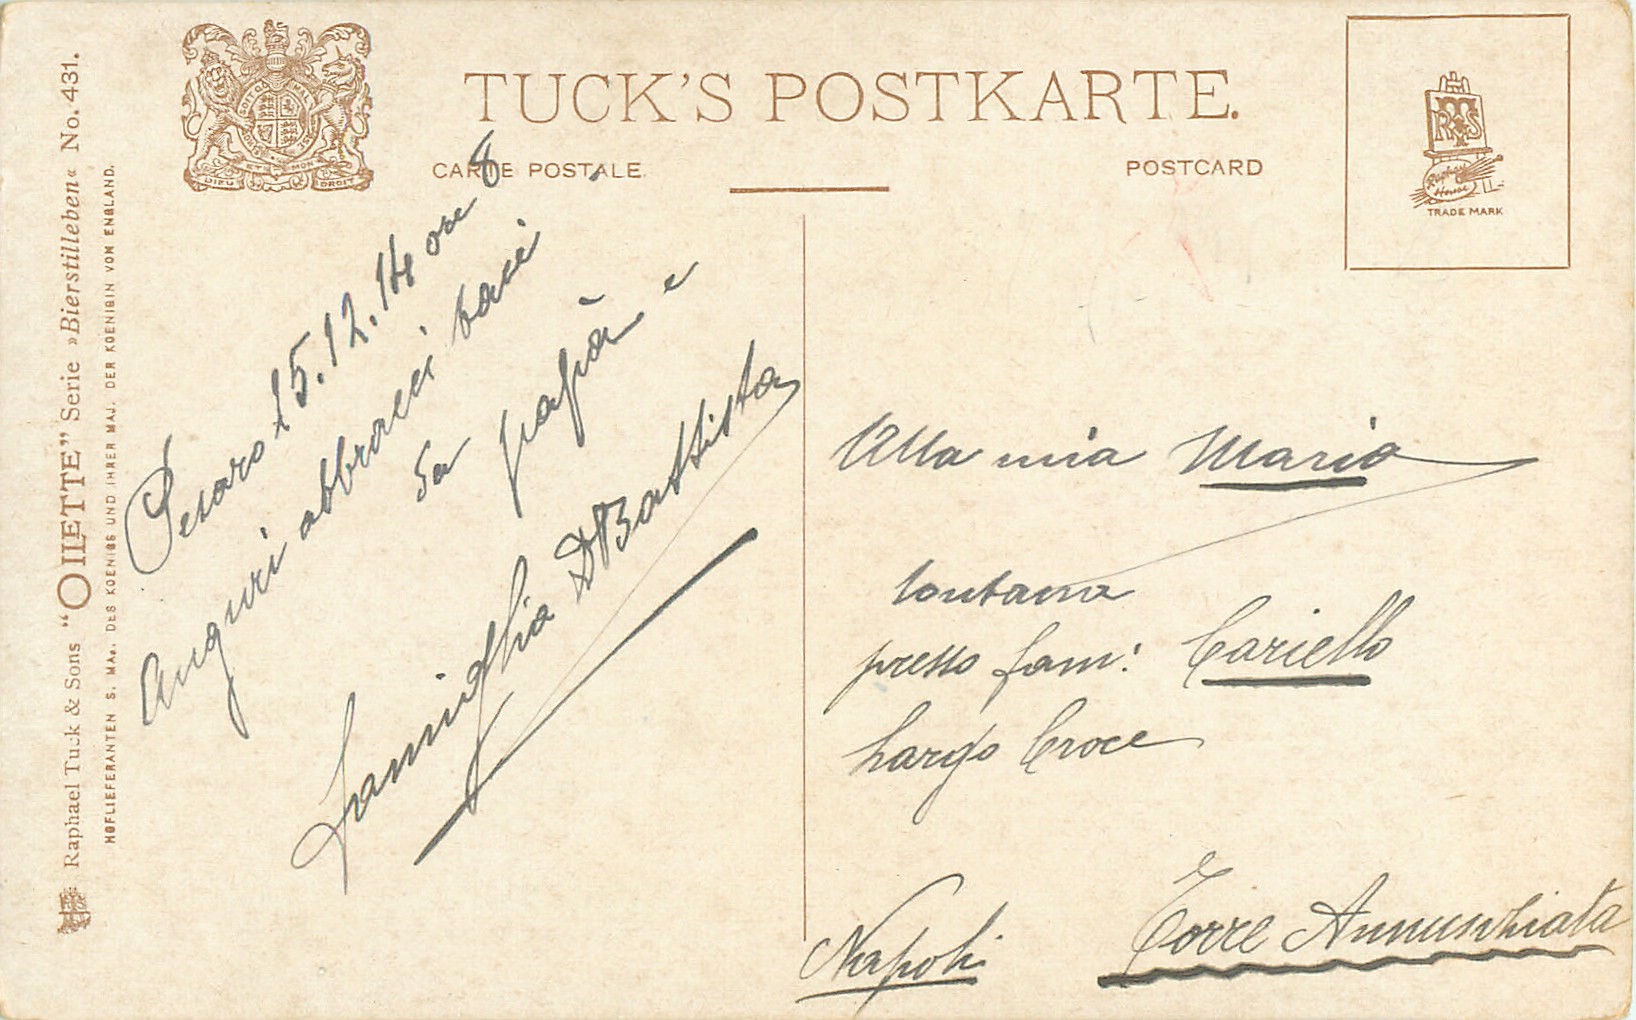 TUCK'S POSTKARTE.
CARTE POSTALE.
POSTCARD
RTS
Raphael House
TRADE MARK
SOIT QUI MAL
DIEU ET MON DROIT
Raphael Tuck & Sons "OILETTE" Serie »Bierstilleben« No. 431.
HOFLIEFERANTEN S. MAJ. DES KOENIGS UND IHRER MAJ. DER KOENIGIN VON ENGLAND.
Pesaro 15.12.14 ore 8
Auguri abbracci baci
da papà e
famiglia DBattista
Alla mia Maria
lontana
presso fam: Cariello
Largo Croce
Torre Annunhiata
Napoli